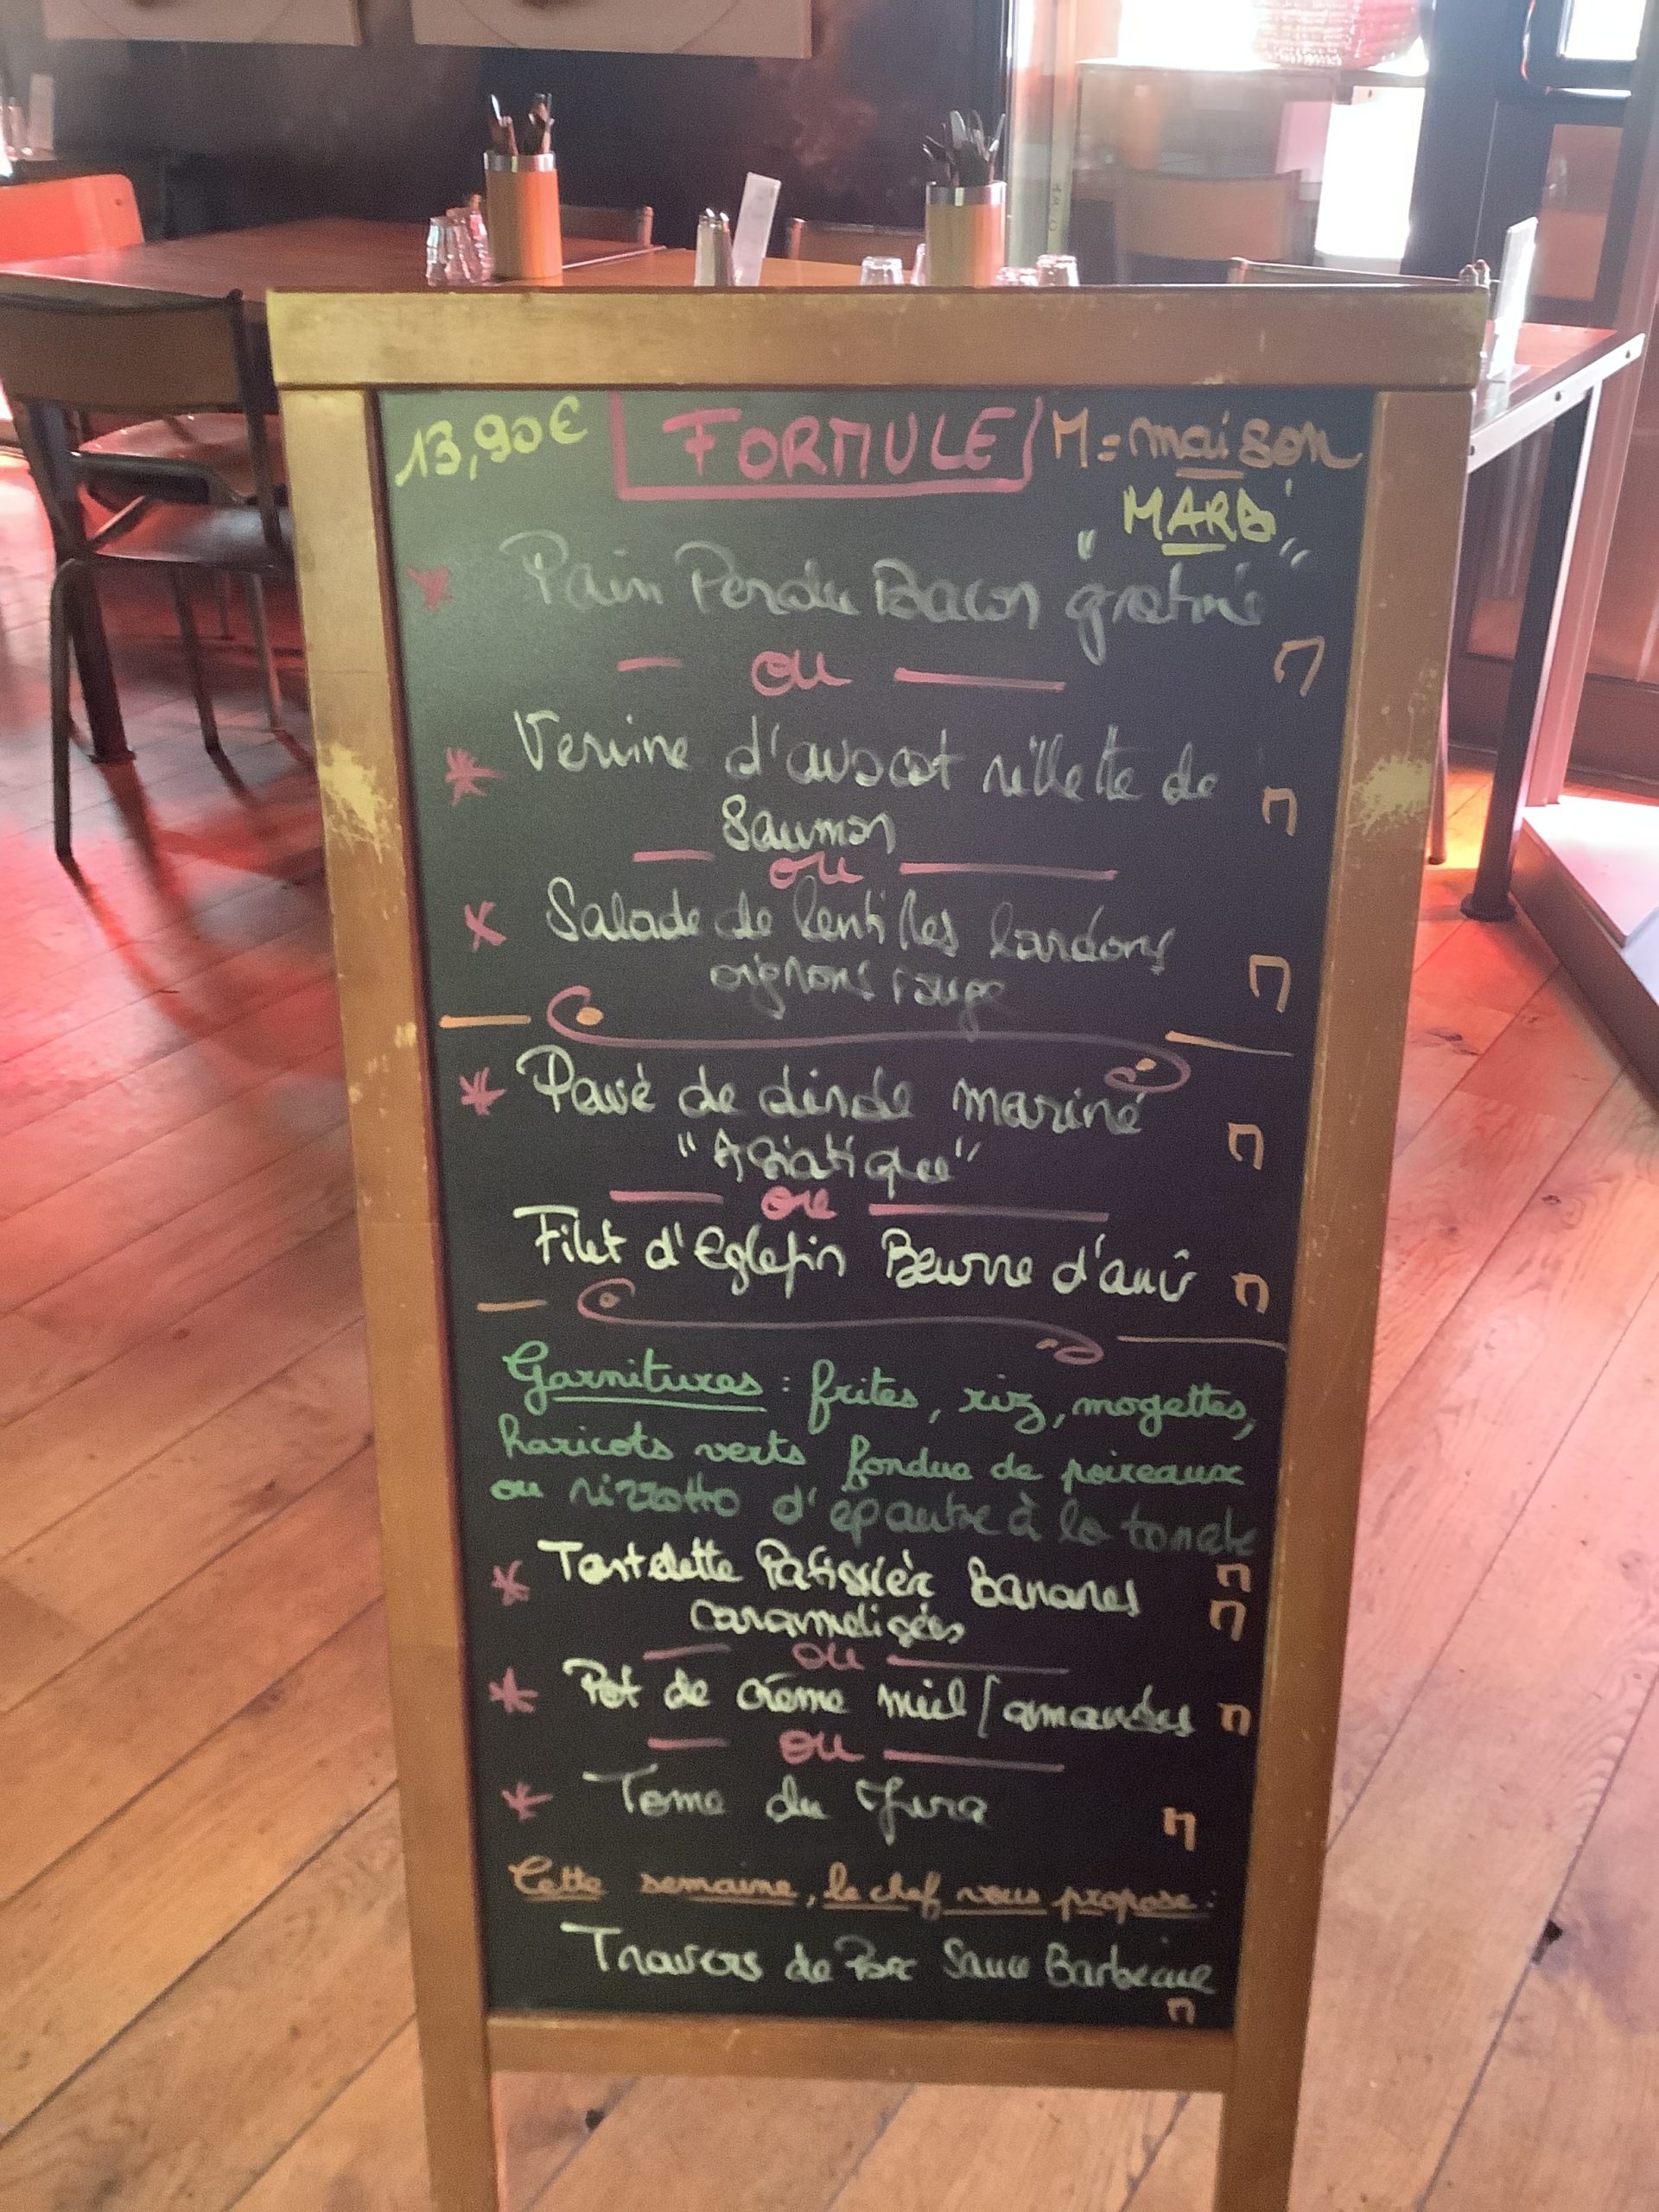 13,90€ FORMULE M = maison
MARDI
* Pain Perdu Bacon "gratiné" M
ou
* Verrine d'avocat rillette de M
Saumon
ou
* Salade de lentilles lardons
oignons rouge M
* Pavé de dinde mariné
"Asiatique" M
ou
Filet d'Eglefin Beurre d' M
Garnitures : frites, riz, mogettes,
haricots verts fondue de poireaux
ou rizzotto d'épautre à la tomate
* Tartelette Patissièr Bananes M
caramelisées M
ou
* Pot de crème miel/amandes M
ou
* Tome du Jura M
Cette semaine, le chef vous propose :
Travers de Porc Sauce Barbecue
M